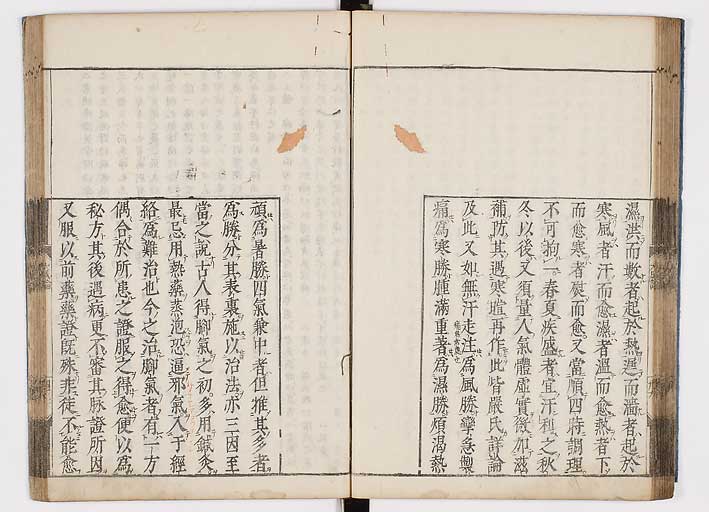 濕洪而數者起於熱遲而濇者起於
寒風者汗而愈濕者溫而愈熱者下
而愈寒者熨而愈又當順四時調理
不可拘一春夏疾盛者宜汗利之秋
冬以後又須量人氣體虛實微加滋
補防其遇寒暄再作此皆嚴氏詳論
及此又如無汗走注爲風勝攣急掣
痛爲寒勝腫滿重著爲濕勝煩渴熱
頑爲暑勝四氣兼中者但推其多者
爲勝分其表裏施以治法亦三因至
當之說古人得脚氣之初多用鍼灸
最忌用熱藥蒸泡恐逼邪氣入于經
絡爲難治也今之治脚氣者有一方
偶合於所患之證服之得愈便以爲
秘方其後遇病更不審其脉證所因
又服以前藥藥證旣殊非徒不能愈